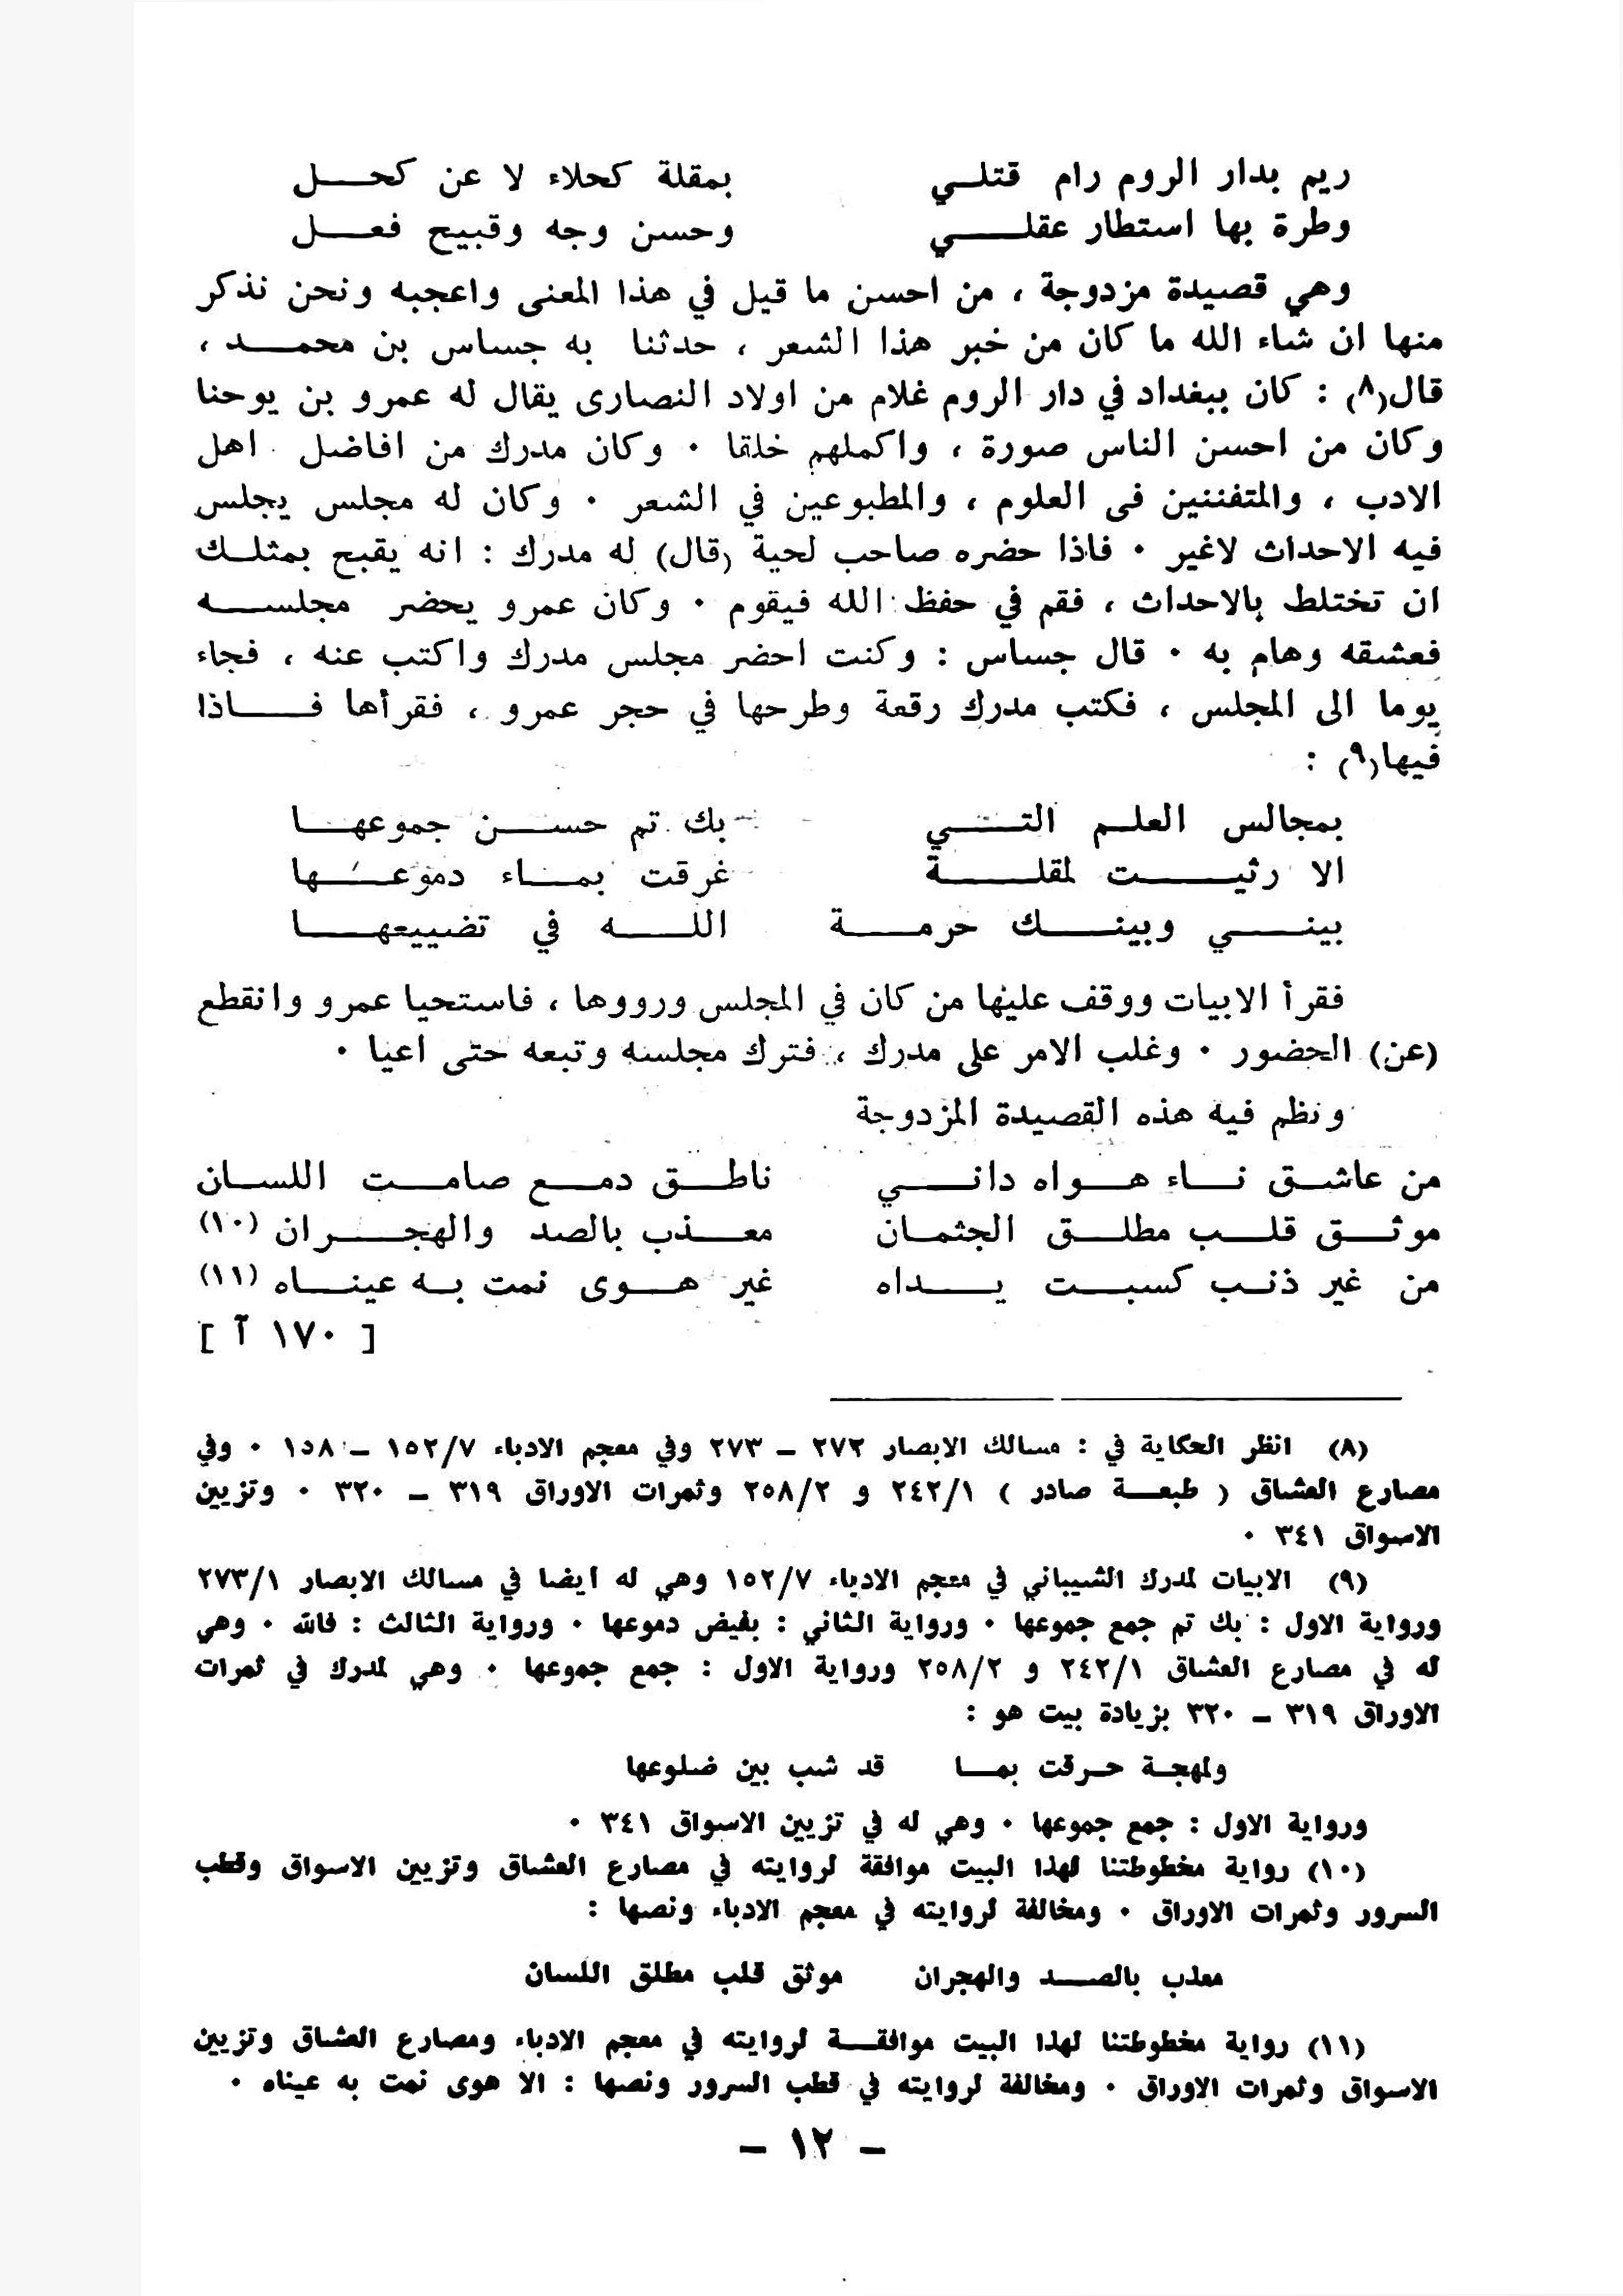 ريم بدار الروم رام قتلي بمقلة كحلاء لا عن كحل
وطرة بها استطار عقلي وحسن وجه وقبيح فعل
وهي قصيدة مزدوجة ، من احسن ما قيل في هذا المعنى واعجبه ونحن نذكر
منها ان شاء الله ما كان من خبر هذا الشعر ، حدثنا به جساس بن محمد ،
قال(٨) : كان ببغداد في دار الروم غلام من اولاد النصارى يقال له عمرو بن يوحنا
وكان من احسن الناس صورة ، واكملهم خلقا ٠ وكان مدرك من افاضل اهل
الادب ، والمتفننين في العلوم ، والمطبوعين في الشعر ٠ وكان له مجلس يجلس
فيه الاحداث لاغير ٠ فاذا حضره صاحب لحية (قال) له مدرك : انه يقبح بمثلك
ان تختلط بالاحداث ، فقم في حفظ الله فيقوم ٠ وكان عمرو يحضر مجلسه
فعشقه وهام به ٠ قال جساس : وكنت احضر مجلس مدرك واكتب عنه ، فجاء
يوما الى المجلس ، فكتب مدرك رقعة وطرحها في حجر عمرو ، فقرأها فاذا
فيها(٩) :
بمجالس العلم التي بك تم حسن جموعها
الا رثيت لمقلة غرقت بماء دموعها
بيني وبينك حرمة الله في تضييعها
فقرأ الابيات ووقف عليها من كان في المجلس ورووها ، فاستحيا عمرو وانقطع
(عن) الحضور ٠ وغلب الامر على مدرك ، فترك مجلسه وتبعه حتى اعيا ٠
ونظم فيه هذه القصيدة المزدوجة
من عاشق ناء هواه داني ناطق دمع صامت اللسان
موثق قلب مطلق الجثمان معذب بالصد والهجران (١٠)
من غير ذنب كسبت يداه غير هوى نمت به عيناه (١١)
[ ١٧٠ آ ]
(٨) انظر الحكاية في : مسالك الابصار ٢٧٢ – ٢٧٣ وفي معجم الادباء ١٥٢/٧ – ١٥٨ ٠ وفي
مصارع العشاق ( طبعة صادر ) ٢٤٢/١ و ٢٥٨/٢ وثمرات الاوراق ٣١٩ – ٣٢٠ ٠ وتزيين
الاسواق ٣٤١ ٠
(٩) الابيات لمدرك الشيباني في معجم الادباء ١٥٢/٧ وهي له ايضا في مسالك الابصار ٢٧٣/١
ورواية الاول : بك تم جمع جموعها ٠ ورواية الثاني : بفيض دموعها ٠ ورواية الثالث : فالله ٠ وهي
له في مصارع العشاق ٢٤٢/١ و ٢٥٨/٢ ورواية الاول : جمع جموعها ٠ وهي لمدرك في ثمرات
الاوراق ٣١٩ – ٣٢٠ بزيادة بيت هو :
ولمهجة حرقت بما قد شب بين ضلوعها
ورواية الاول : جمع جموعها ٠ وهي له في تزيين الاسواق ٣٤١ ٠
(١٠) رواية مخطوطتنا لهذا البيت موافقة لروايته في مصارع العشاق وتزيين الاسواق وقطب
السرور وثمرات الاوراق ٠ ومخالفة لروايته في معجم الادباء ونصها :
معذب بالصد والهجران موثق قلب مطلق اللسان
(١١) رواية مخطوطتنا لهذا البيت موافقة لروايته في معجم الادباء ومصارع العشاق وتزيين
الاسواق وثمرات الاوراق ٠ ومخالفة لروايته في قطب السرور ونصها : الا هوى نمت به عيناه ٠
– ١٢ –